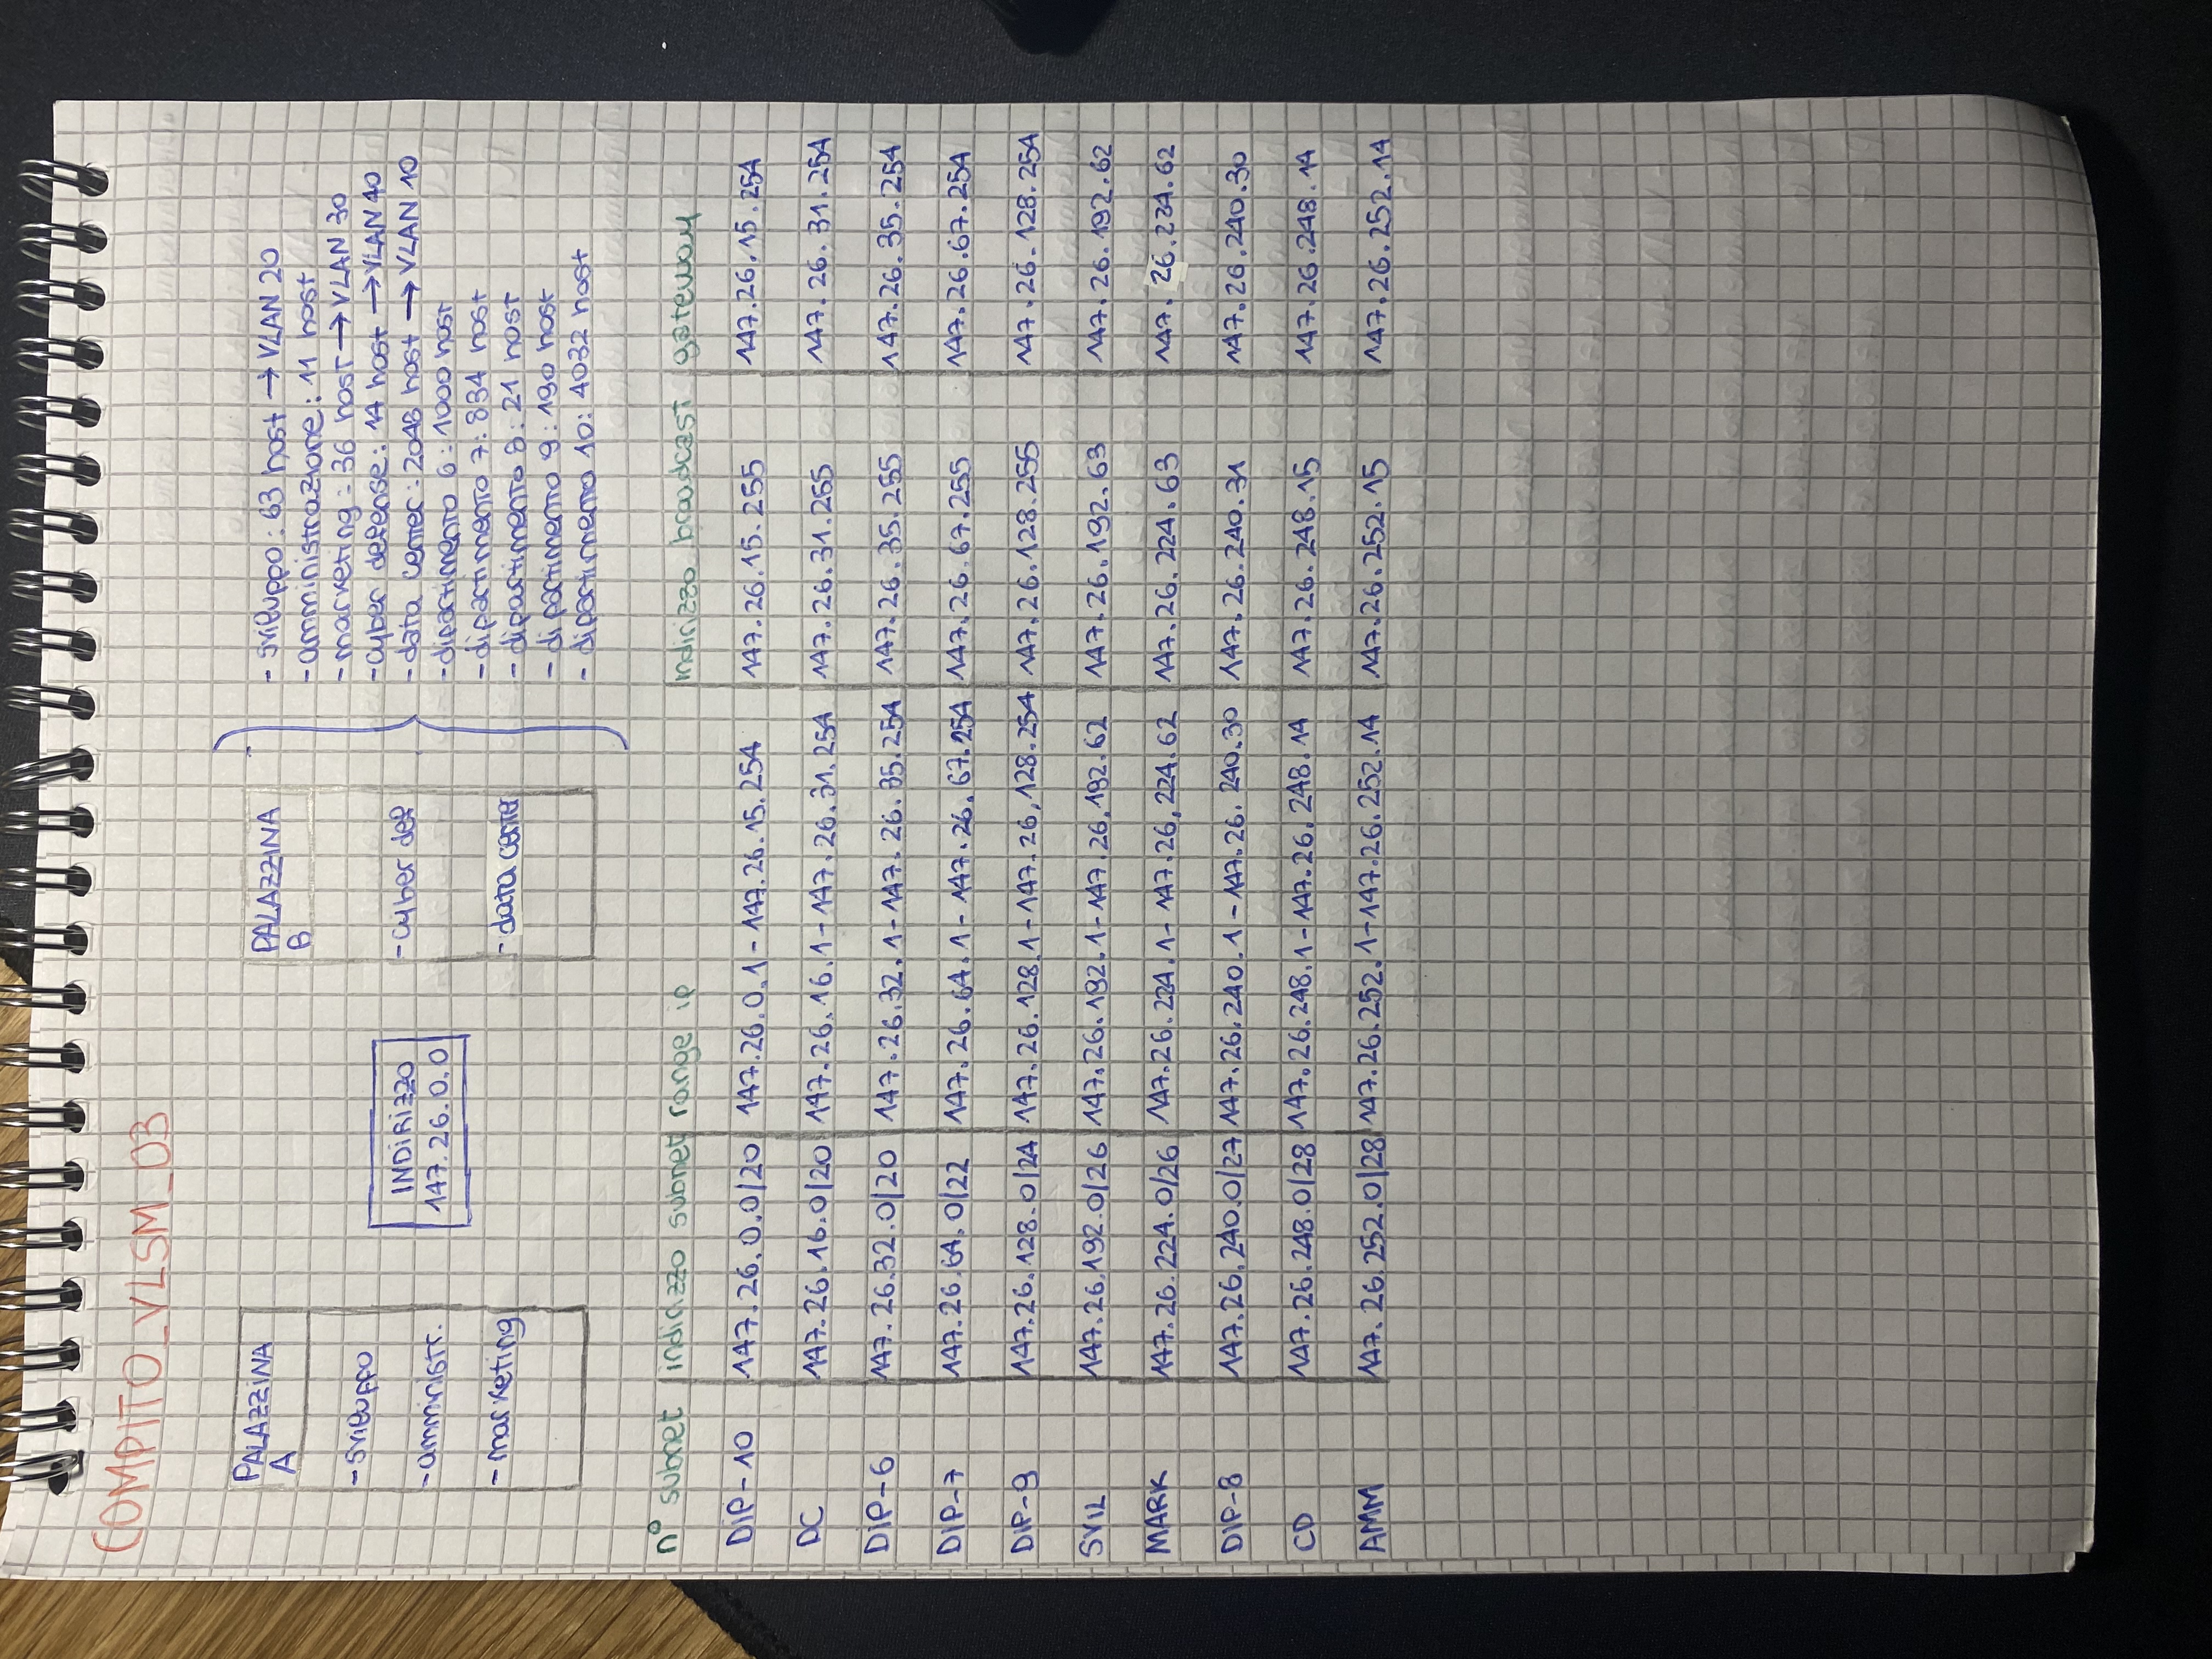 COMPITO_VLSM_03
PALAZZINA
A
- sviluppo
- amministr.
- marketing
INDIRIZZO
147.26.0.0
PALAZZINA
B
- cyber def
- data center
- sviluppo: 63 host → VLAN 20
- amministrazione: 11 host
- marketing: 36 host → VLAN 30
- cyber defense: 14 host → VLAN 40
- data center: 2048 host → VLAN 10
- dipartimento 6: 1000 host
- dipartimento 7: 834 host
- dipartimento 8: 21 host
- dipartimento 9: 190 host
- dipartimento 10: 4032 host
n° subnet indirizzo subnet range ip indirizzo broadcast gateway
DIP-10 147.26.0.0/20 147.26.0.1 - 147.26.15.254 147.26.15.255 147.26.15.254
DC 147.26.16.0/20 147.26.16.1 - 147.26.31.254 147.26.31.255 147.26.31.254
DIP-6 147.26.32.0/20 147.26.32.1 - 147.26.35.254 147.26.35.255 147.26.35.254
DIP-7 147.26.64.0/22 147.26.64.1 - 147.26.67.254 147.26.67.255 147.26.67.254
DIP-9 147.26.128.0/24 147.26.128.1 - 147.26.128.254 147.26.128.255 147.26.128.254
SVIL 147.26.192.0/26 147.26.192.1 - 147.26.192.62 147.26.192.63 147.26.192.62
MARK 147.26.224.0/26 147.26.224.1 - 147.26.224.62 147.26.224.63 147.26.224.62
DIP-8 147.26.240.0/27 147.26.240.1 - 147.26.240.30 147.26.240.31 147.26.240.30
CD 147.26.248.0/28 147.26.248.1 - 147.26.248.14 147.26.248.15 147.26.248.14
AMM 147.26.252.0/28 147.26.252.1 - 147.26.252.14 147.26.252.15 147.26.252.14